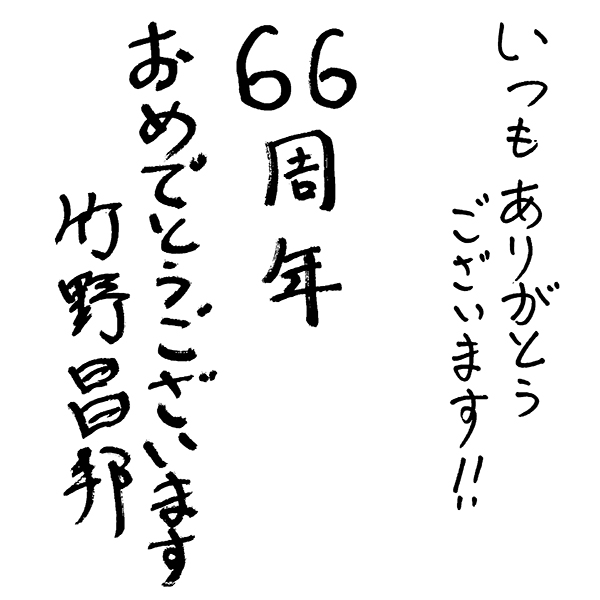 いつもありがとう
ございます!!
66
周年
おめでとうございます
竹野昌邦